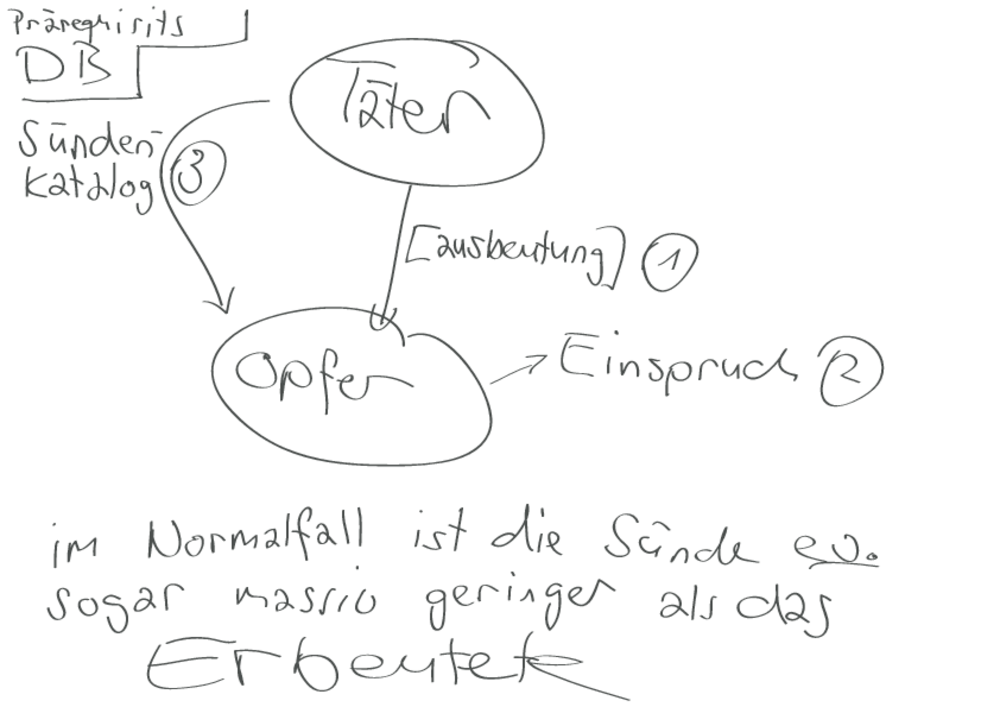 Präreqisits
DB
Sünden-
Katalog ③
Täter
[ausbeutung] ①
Opfer
→ Einspruch ②
im Normalfall ist die Sünde ev.
sogar massiv geringer als das
Erbeutete